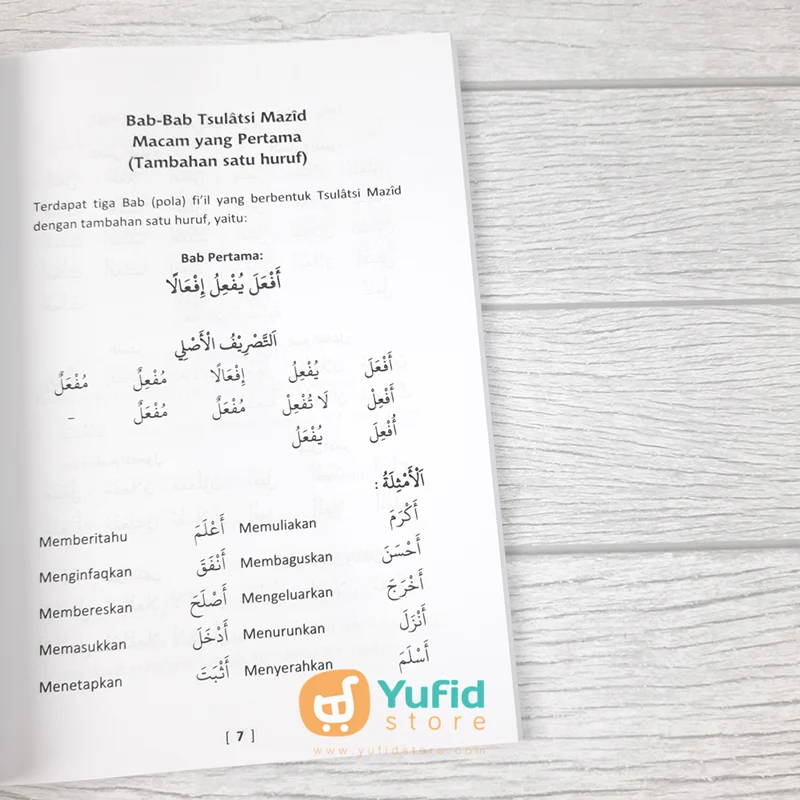 Bab-Bab Tsulâtsi Mazîd
Macam yang Pertama
(Tambahan satu huruf)
Terdapat tiga Bab (pola) fi'il yang berbentuk Tsulâtsi Mazîd
dengan tambahan satu huruf, yaitu:
Bab Pertama:
أَفْعَلَ يُفْعِلُ إِفْعَالًا
اَلتَّصْرِيْفُ الْأَصْلِي
أَفْعَلَ يُفْعِلُ إِفْعَالًا مُفْعِلٌ مُفْعَلٌ
أَفْعِلْ لَا تُفْعِلْ مُفْعَلٌ مُفْعَلٌ –
أُفْعِلَ يُفْعَلُ
اَلْأَمْثِلَةُ :
أَكْرَمَ Memuliakan أَعْلَمَ Memberitahu
أَحْسَنَ Membaguskan أَنْفَقَ Menginfaqkan
أَخْرَجَ Mengeluarkan أَصْلَحَ Membereskan
أَنْزَلَ Menurunkan أَدْخَلَ Memasukkan
أَسْلَمَ Menyerahkan أَثْبَتَ Menetapkan
[ 7 ]
Yufid
store
www.yufidstore.com